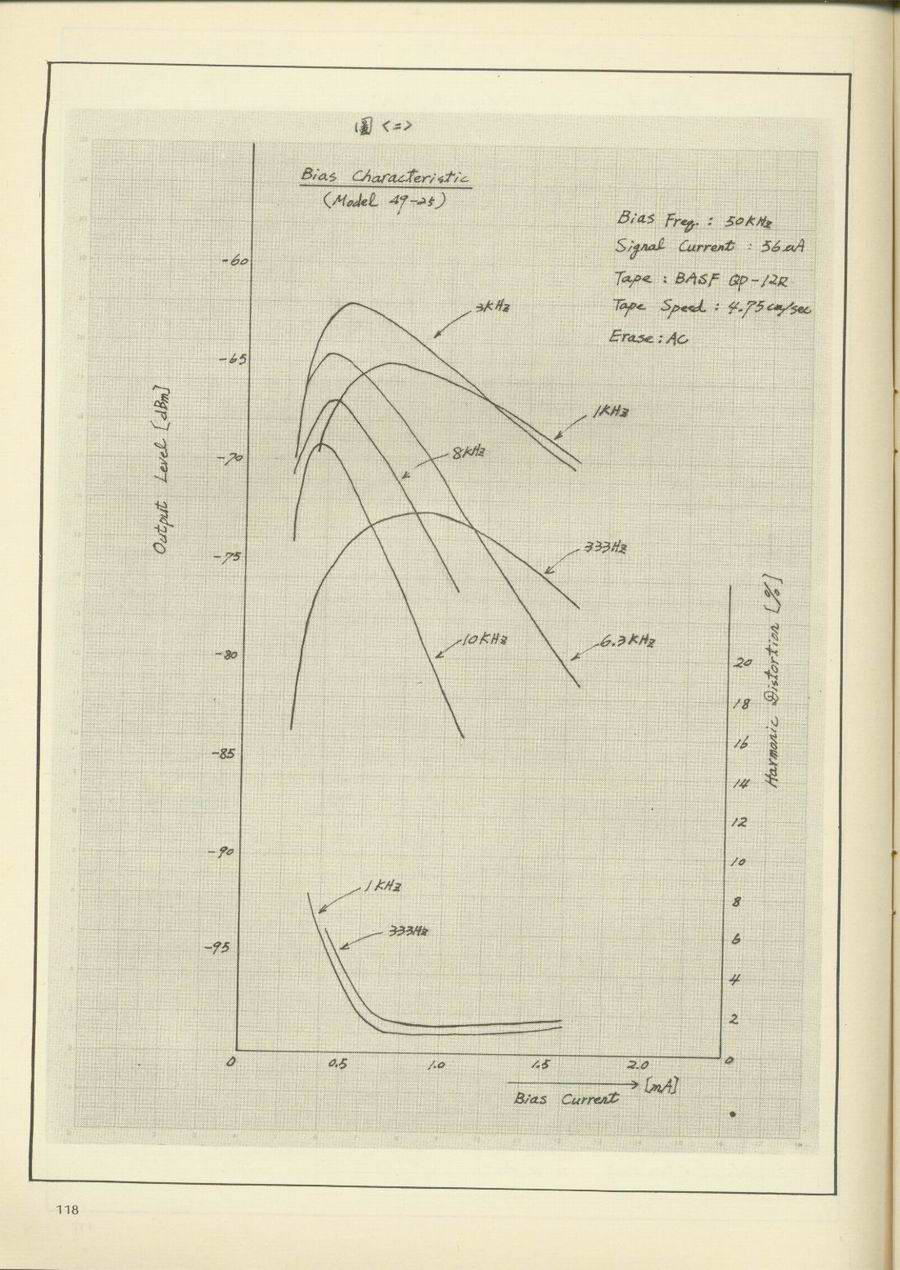 圖<二>
Bias Characteristic
(Model 49-25)
Bias Freq. : 50KHz
Signal Current : 56uA
Tape : BASF QP-12R
Tape Speed : 4.75cm/sec
Erase : AC
Output Level [dBm]
-60
-65
-70
-75
-80
-85
-90
-95
3KHz
1KHz
8KHz
333Hz
10KHz
6.3KHz
1KHz
333Hz
Harmonic Distortion [%]
20
18
16
14
12
10
8
6
4
2
0
0
0.5
1.0
1.5
2.0
[mA]
Bias Current
118